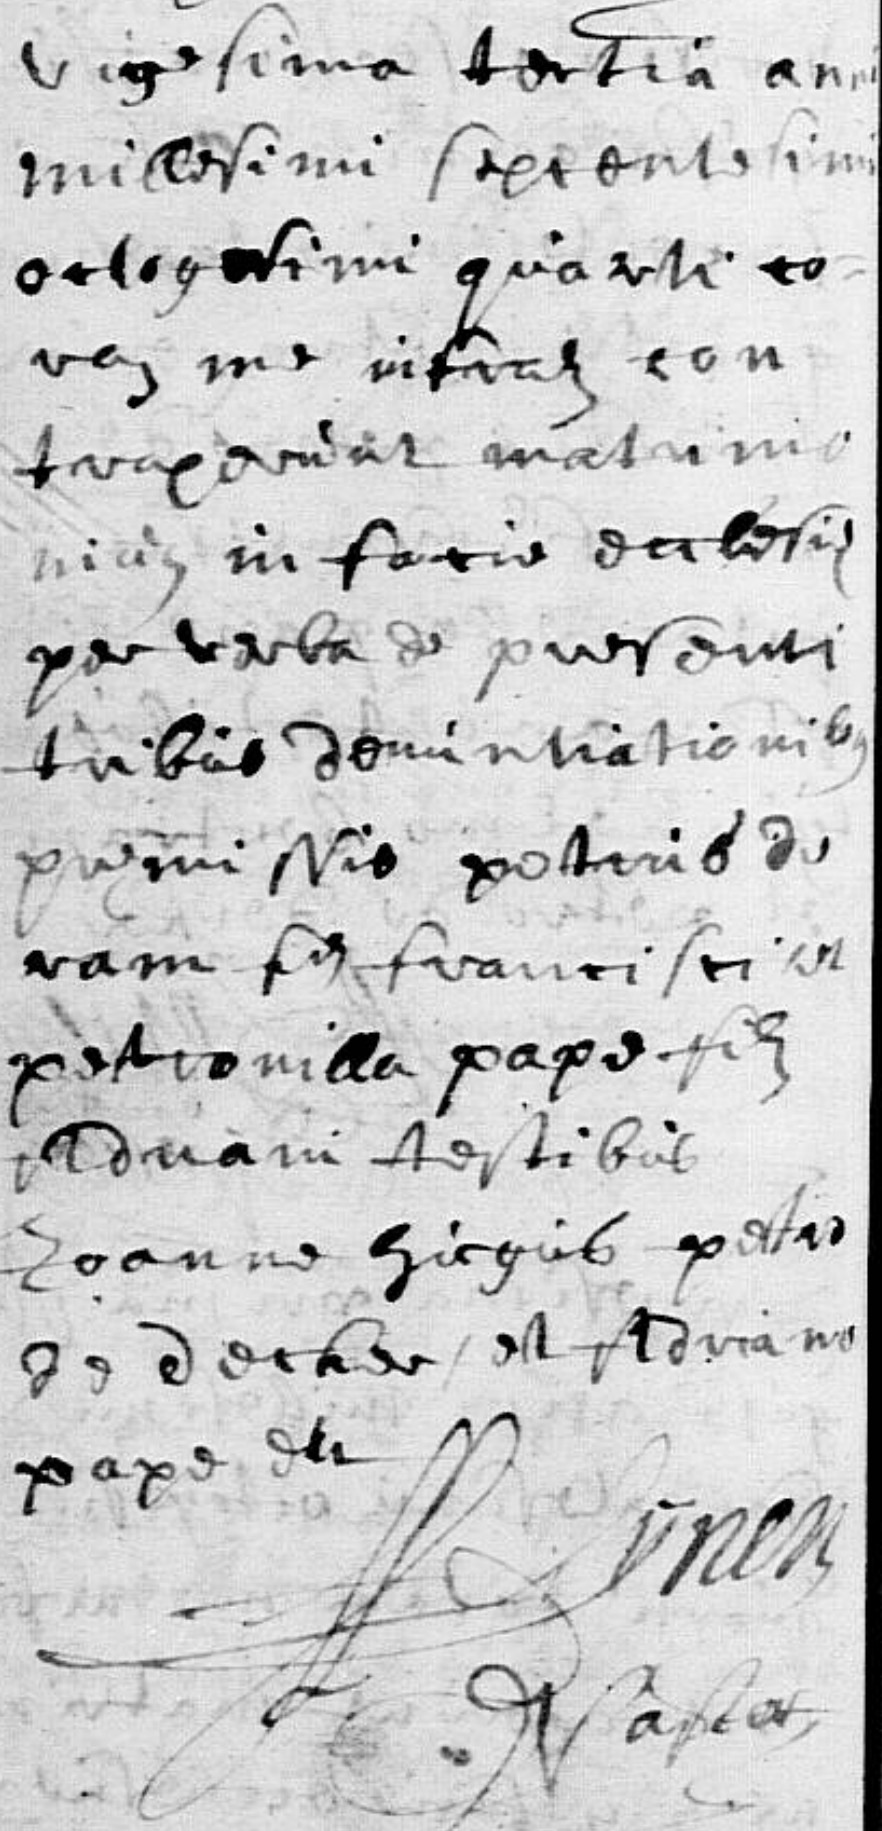 vigesima tertia anni
millesimi sexcentesimi
octogesimi quarti co-
ram me infras con
traxerunt matrimo
nium in facie ecclesiæ
per verba de presenti
tribus denuntiationibus
premissis petrus de
ram fil francisci et
petronilla pape fil
Adriani testibus
Joanne petro
de decker / et Adriano
pape etc